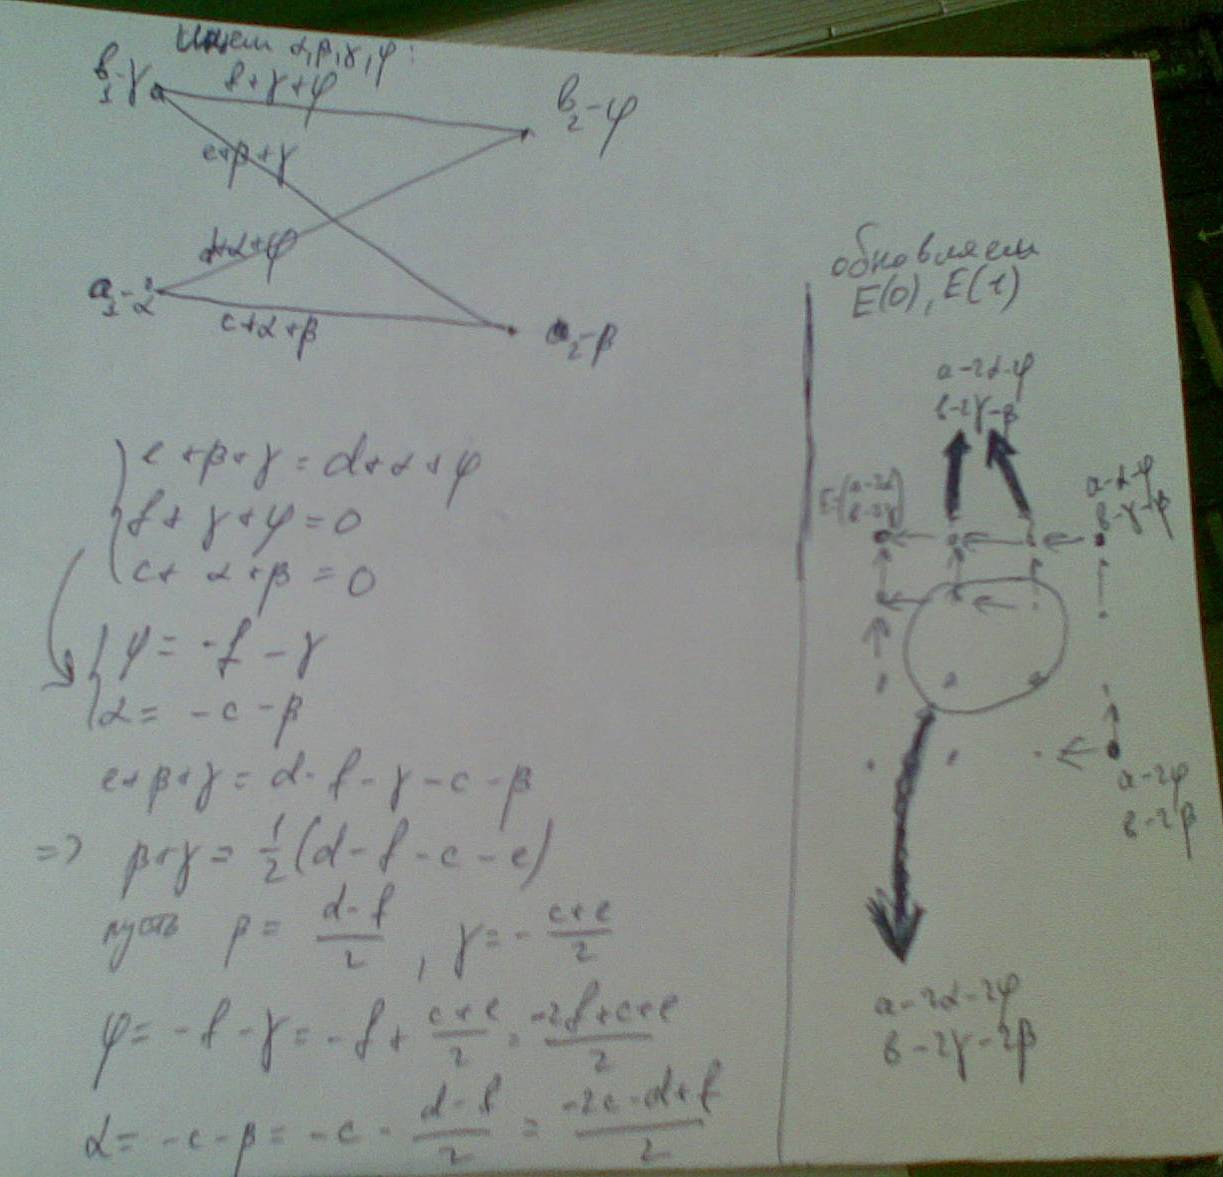 Ищем α, β, γ, φ:
b₁-γ
f+γ+φ
b₂-φ
e+β+γ
d+α+φ
a₁-α
c+α+β
a₂-β
e+β+γ=d+α+φ
f+γ+φ=0
c+α+β=0
φ=-f-γ
α=-c-β
e+β+γ=d-f-γ-c-β
=> β+γ=1/2(d-f-c-e)
пусть β=(d-f)/2, γ=-(c+e)/2
φ=-f-γ=-f+(c+e)/2=(-2f+c+e)/2
α=-c-β=-c-(d-f)/2=(-2c-d+f)/2
обновляем
E(0), E(1)
a-2α-φ
b-2γ-β
E=(a-2α
b-2γ)
a-α-φ
b-γ-β
a-2φ
b-2β
a-2α-2φ
b-2γ-2β